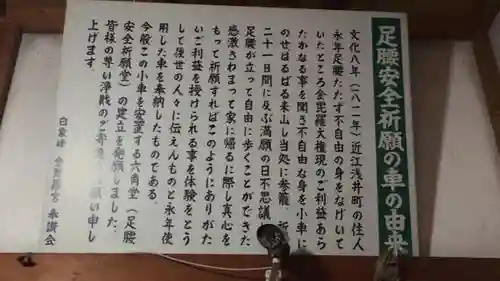 足腰安全祈願の車の由来
文化八年(一八一一年)近江浅井町の住人
永年足腰たたず不自由の身をなげいて
いたところ金毘羅大権現のご利益あら
たかなる事を聞き不自由な身を小車に
のせはるばる来山し当処に参籠、祈
二十一日間に及ぶ満願の日不思議
足腰が立って自由に歩くことができた
感激さわまって家に帰るに際し真心を
もって祈願すればこのようにありがた
いご利益を授けられる事を体験をとう
して後世の人々に伝えんものと永年使
用した車を奉納したものである。
今般この小車を安置する六角堂(足腰
安全祈願堂)の建立を発願しました。
皆様の尊い浄財のご寄進 願い申し
上げます。
白象峰 金毘羅宮 奉讃会